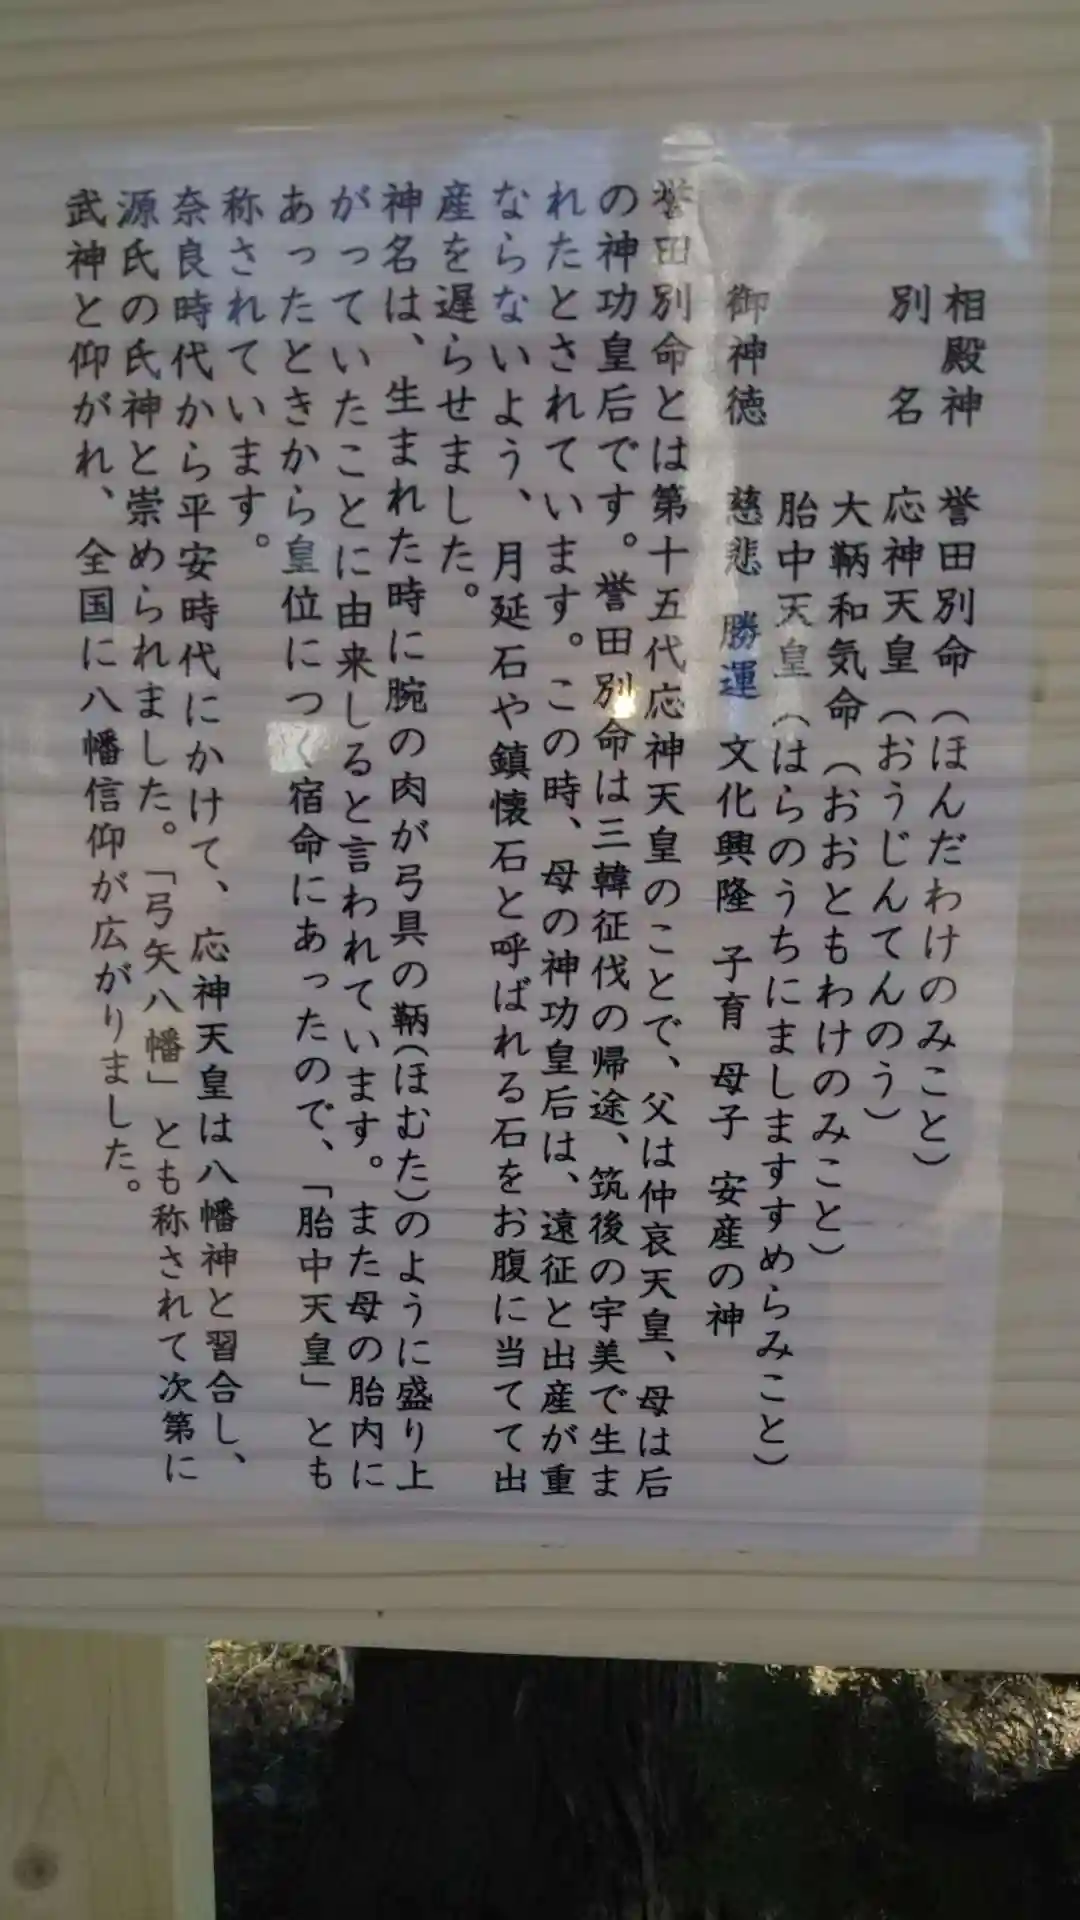 相殿神　誉田別命（ほんだわけのみこと）
別　名　応神天皇（おうじんてんのう）
大鞆和気命（おおともわけのみこと）
胎中天皇（はらのうちにましますすめらみこと）
御神徳　慈悲　勝運　文化興隆　子育　母子　安産の神
誉田別命とは第十五代応神天皇のことで、父は仲哀天皇、母は后
の神功皇后です。誉田別命は三韓征伐の帰途、筑後の宇美で生ま
れたとされています。この時、母の神功皇后は、遠征と出産が重
ならないよう、月延石や鎮懐石と呼ばれる石をお腹に当てて出
産を遅らせました。
神名は、生まれた時に腕の肉が弓具の鞆(ほむた)のように盛り上
がっていたことに由来しると言われています。また母の胎内に
あったときから皇位につく宿命にあったので、「胎中天皇」とも
称されています。
奈良時代から平安時代にかけて、応神天皇は八幡神と習合し、
源氏の氏神と崇められました。「弓矢八幡」とも称されて次第に
武神と仰がれ、全国に八幡信仰が広がりました。